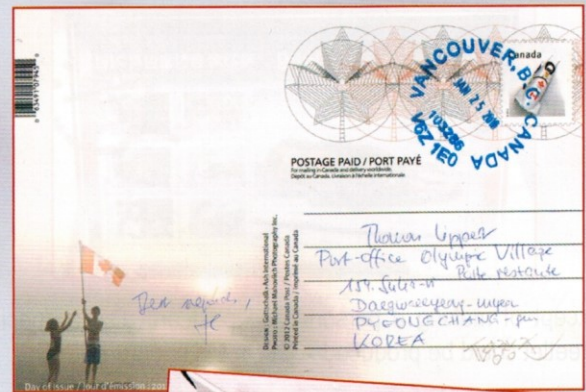 Canada
VANCOUVER, B.C. CANADA
JAN 25
103286
V6Z 1E0
POSTAGE PAID / PORT PAYÉ
For mailing in Canada and delivery worldwide.
Dépôt au Canada. Livraison à l'échelle internationale.
DESIGN: Gottschalk+Ash International
PHOTO: Michael Mahovlich Photography Inc.
© 2012 Canada Post / Postes Canada
Printed in Canada / Imprimé au Canada
Thomas Lippert
Post-Office Olympic Village
Poste restante
Daegwallyeong-myeon
PYEONGCHANG-gun
KOREA
Best regards,
Day of issue / Jour d'émission : 201